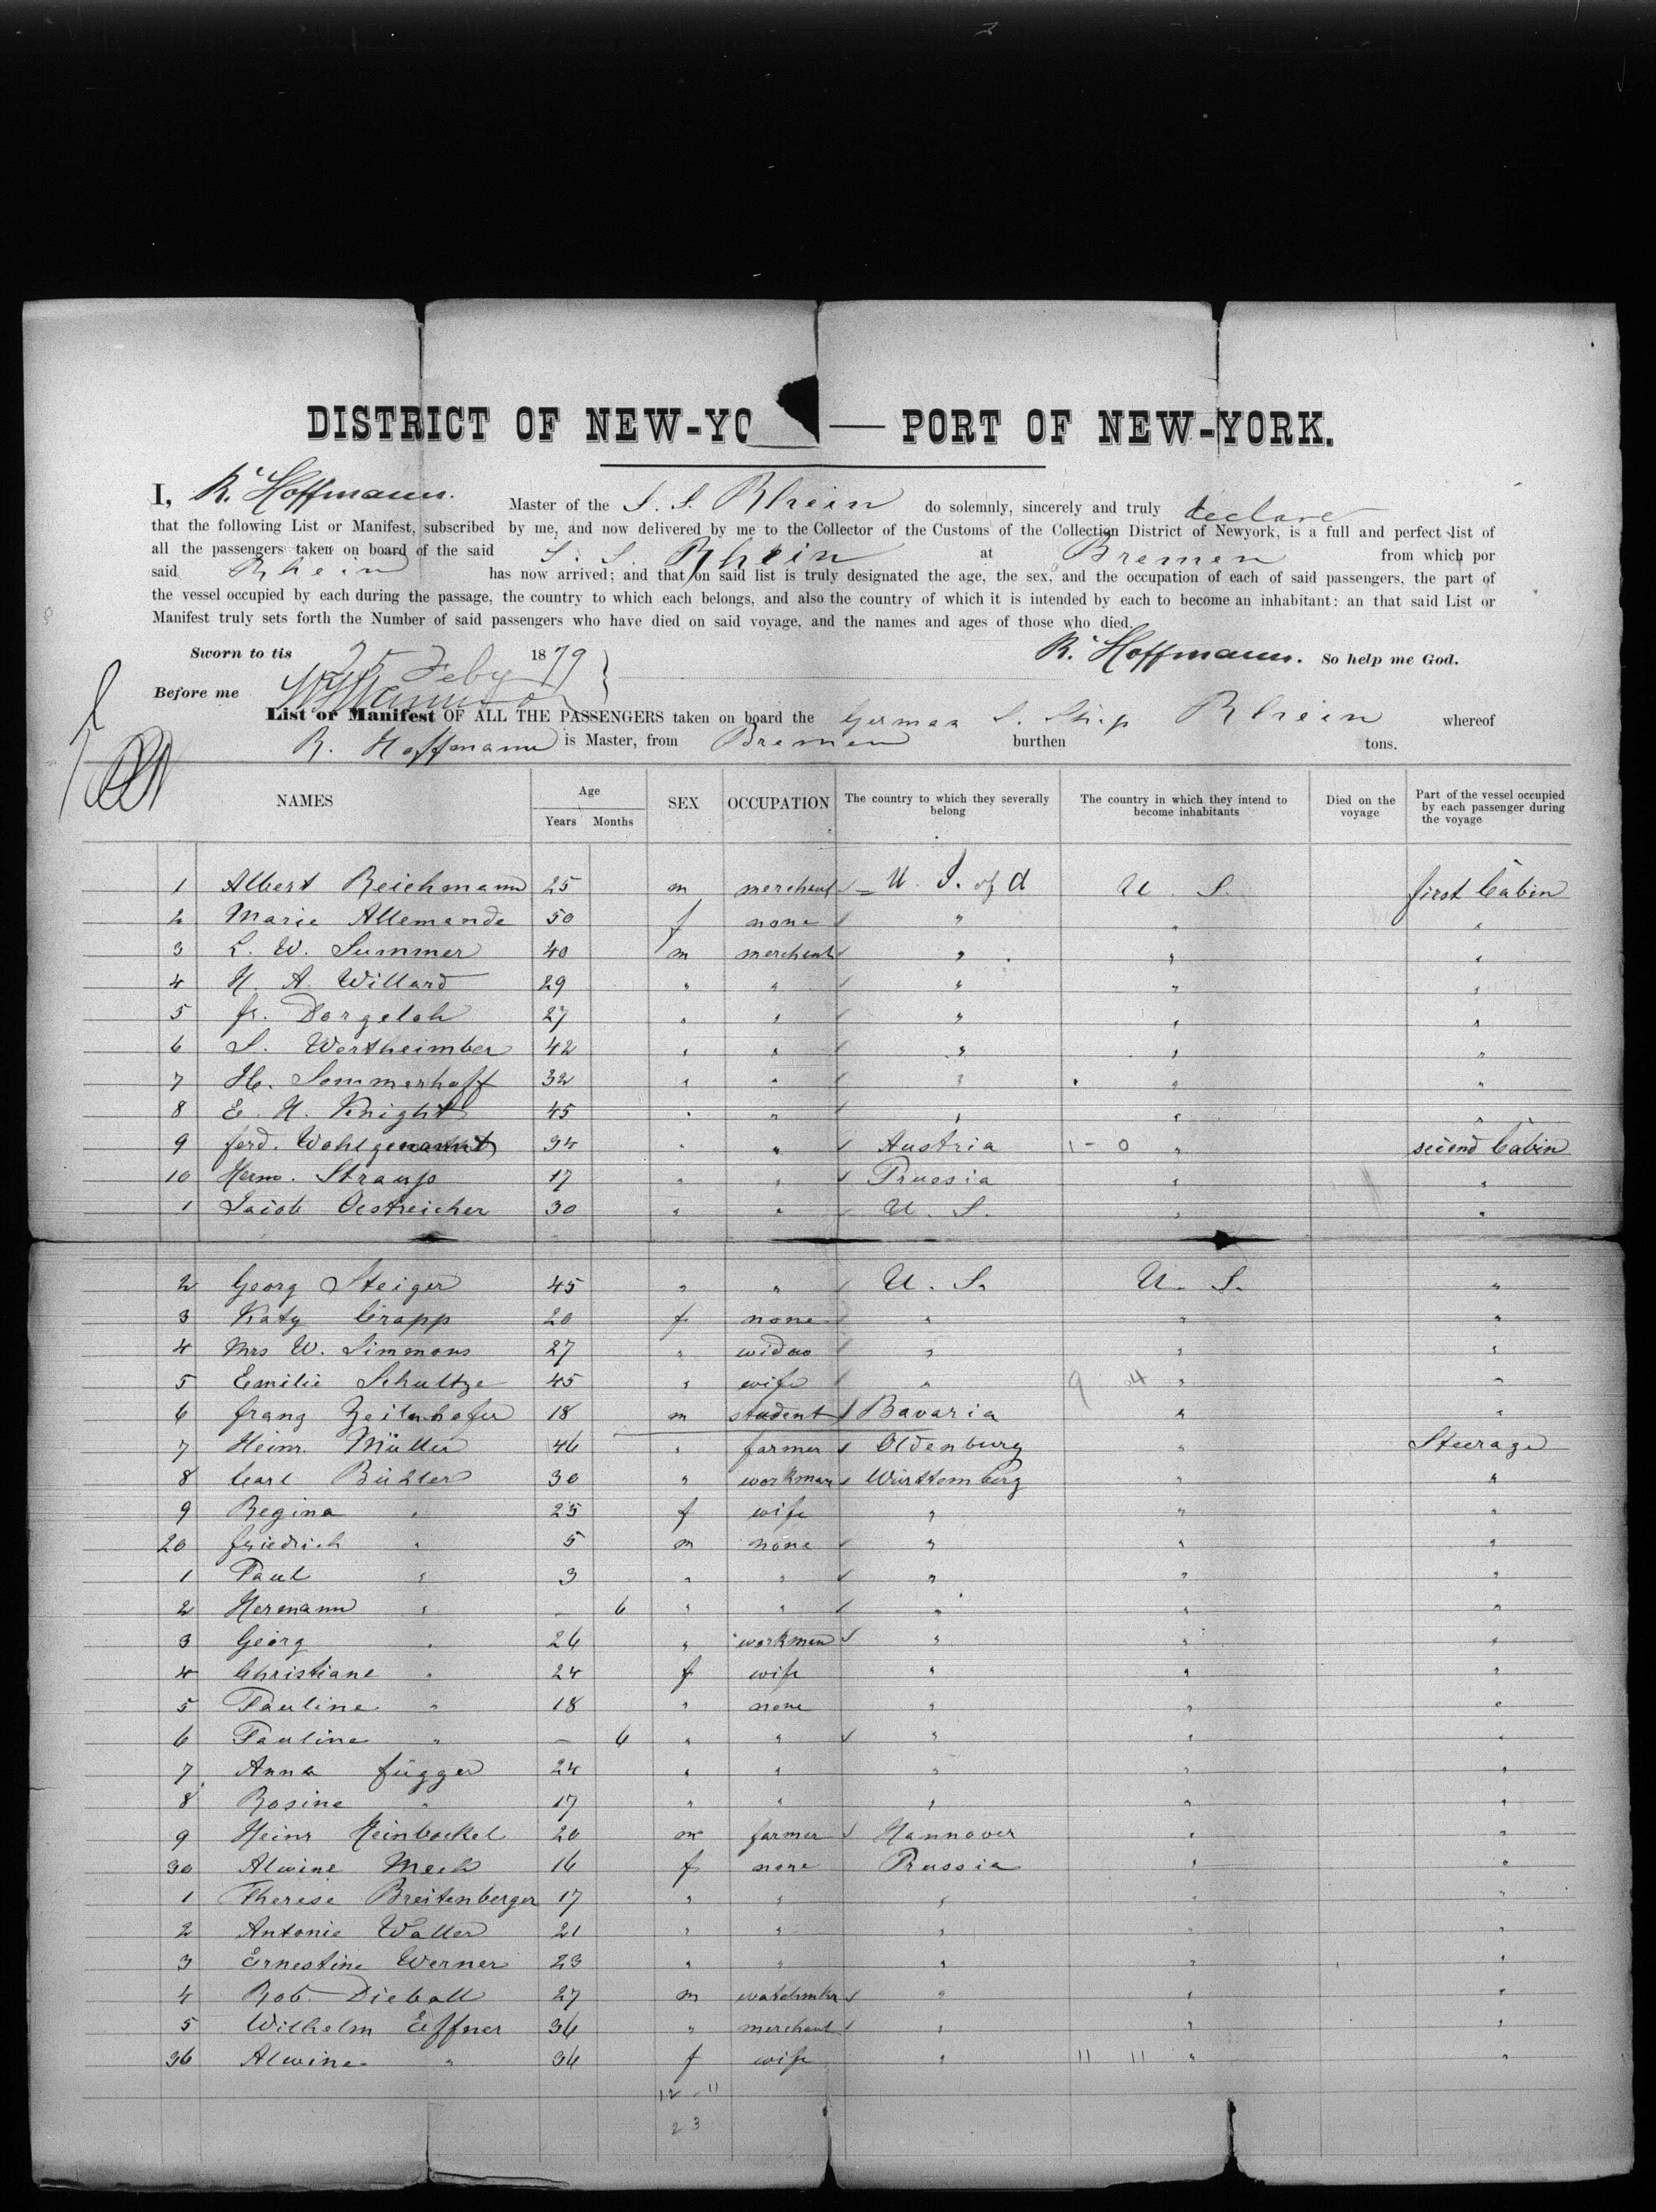 DISTRICT OF NEW-YO — PORT OF NEW-YORK.
I, R. Hoffmann. Master of the S. S. Rhein do solemnly, sincerely and truly declare
that the following List or Manifest, subscribed by me, and now delivered by me to the Collector of the Customs of the Collection District of Newyork, is a full and perfect list of
all the passengers taken on board of the said S. S. Rhein at Bremen from which por
said Rhein has now arrived; and that on said list is truly designated the age, the sex, and the occupation of each of said passengers, the part of
the vessel occupied by each during the passage, the country to which each belongs, and also the country of which it is intended by each to become an inhabitant: an that said List or
Manifest truly sets forth the Number of said passengers who have died on said voyage, and the names and ages of those who died.
Sworn to tis 25 Feby 1879 R. Hoffmann. So help me God.
Before me
List or Manifest OF ALL THE PASSENGERS taken on board the German S. Ship Rhein whereof
R. Hoffmann is Master, from Bremen burthen tons.
NAMES Age Years Months SEX OCCUPATION The country to which they severally belong The country in which they intend to become inhabitants Died on the voyage Part of the vessel occupied by each passenger during the voyage
1 Albert Reichmann 25 m merchant U. S. of A U. S. first Cabin
2 Marie Allemande 50 f none " " "
3 L. W. Summer 40 m merchant " " "
4 H. A. Willard 29 " " " " "
5 fr. Dorgeloh 27 " " " " "
6 S. Wertheimber 42 " " " " "
7 He. Sommerhoff 32 " " " " "
8 E. H. Knight 45 " " " " "
9 ferd. Wohlgenannt 34 " " Austria 1 - 0 " second Cabin
10 Herm. Strauss 17 " " Prussia " "
1 Jacob Oestreicher 30 " " U. S. " "
2 Georg Steiger 45 " " U. S. U. S. "
3 Katy Crapp 20 f none " " "
4 Mrs W. Simmons 27 " widow " " "
5 Emilie Schultze 45 " wife " 9 "  "
6 franz Zeilnhofer 18 m student Bavaria " "
7 Heinr. Müller 46 " farmer Oldenburg " Steerage
8 Carl Bühler 30 " workman Württemberg " "
9 Regina " 25 f wife " " "
20 friedrich " 5 m none " " "
1 Paul " 3 " " " " "
2 Hermann " – 6 " " " " "
3 Georg " 26 " workman " " "
4 Christiane " 24 f wife " " "
5 Pauline " 18 " none " " "
6 Pauline " – 6 " " " " "
7 Anna függer 24 " " " " "
8 Rosine " 17 " " " " "
9 Heinr Heinbockel 20 m farmer Hannover " "
30 Alwine Mech 16 f none Prussia " "
1 Therese Breitenberger 17 " " " " "
2 Antonie Walter 21 " " " " "
3 Ernestine Werner 23 " " " " "
4 Rob. Dieball 27 m watchmkr " " "
5 Wilhelm Effner 36 " merchant " " "
36 Alwine " 36 f wife " 11 11 " "
12 - 11
23